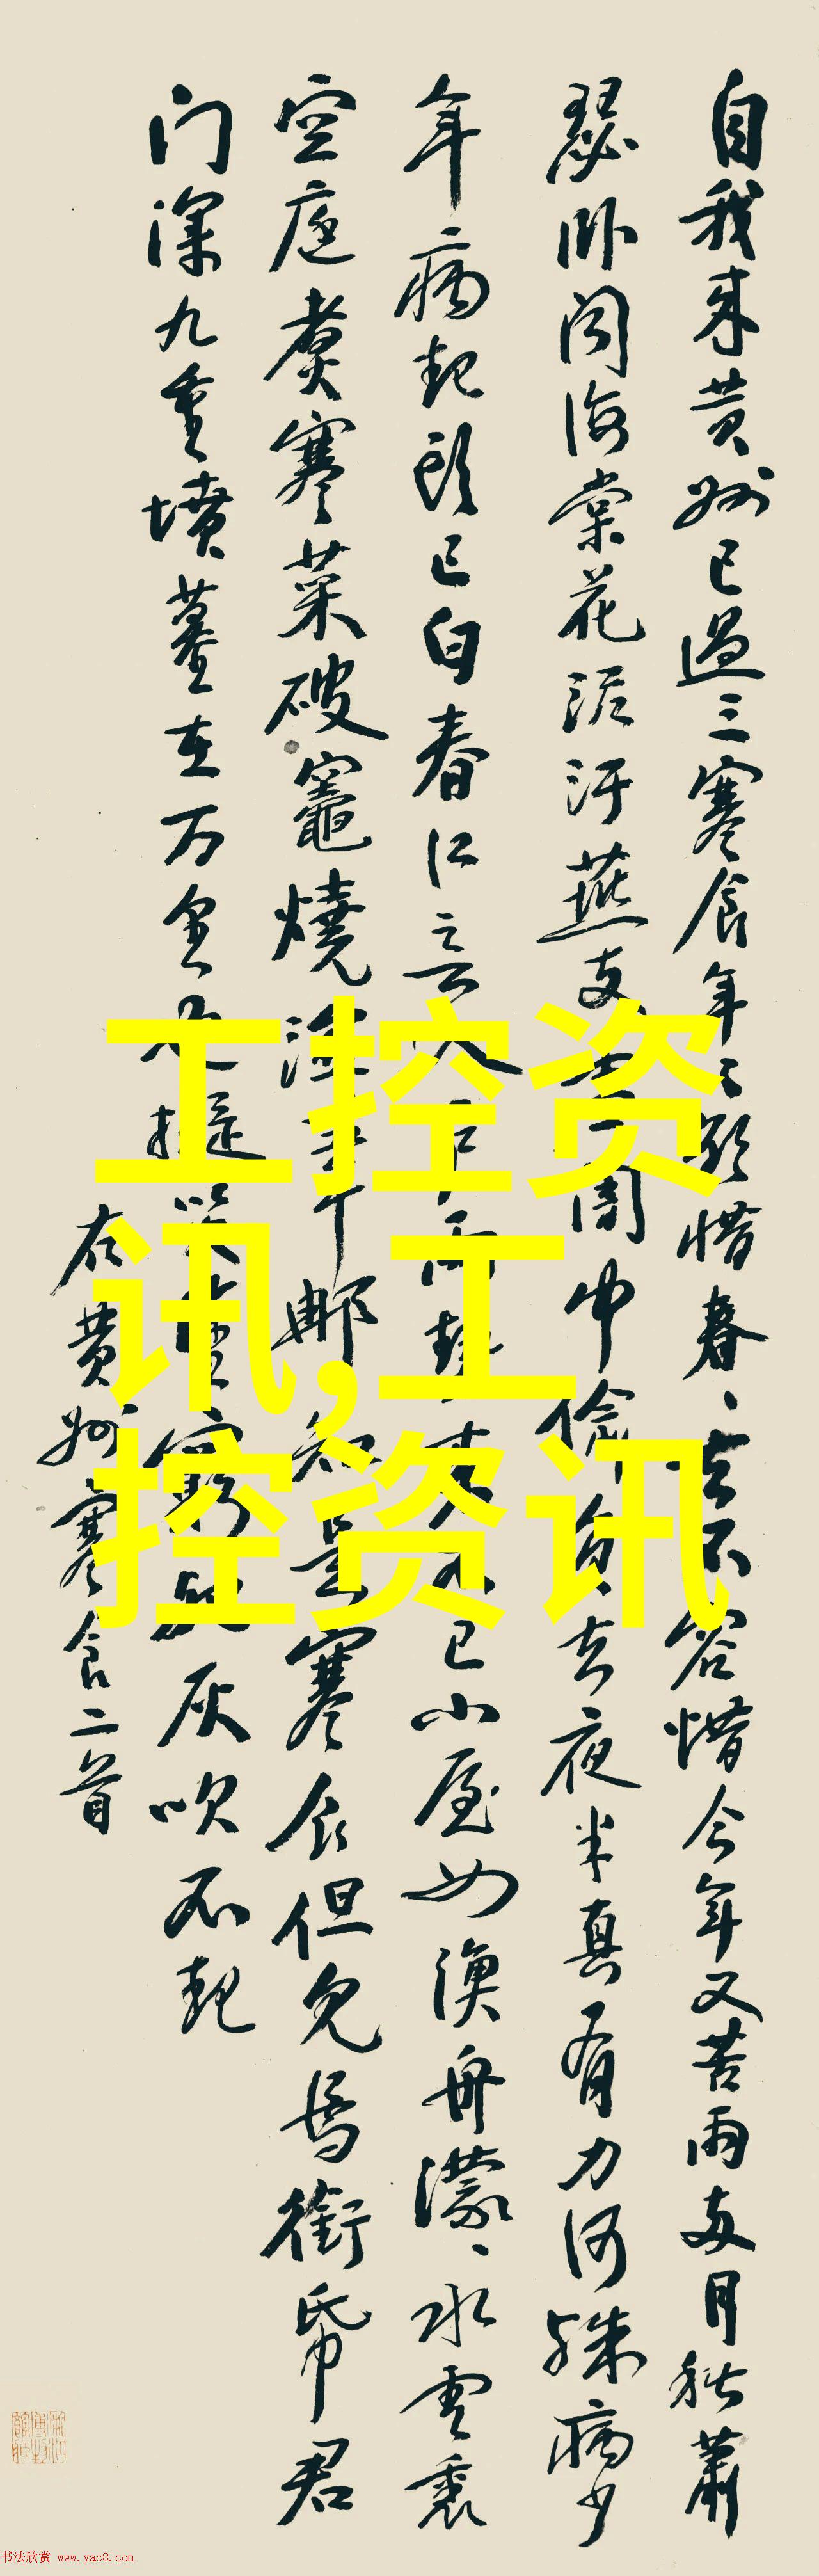 自我来黄州已過三寒食年〻欲惜春〻去不容惜今年又苦雨兩月秋蕭
瑟卧闻海棠花泥汙燕支雪闇中偷負去夜半真有力何殊病少
年病起頭已白春江言入户雨勢来不已小屋如漁舟濛〻水雲裏
空庖煮寒菜破竈燒濕葦那知是寒食但見烏銜帋君
门深九重墳墓在万里也擬哭塗窮死灰吹不起
右黄州寒食二首
工控资
讯,工
控资讯
书法欣赏 www.yac8.com